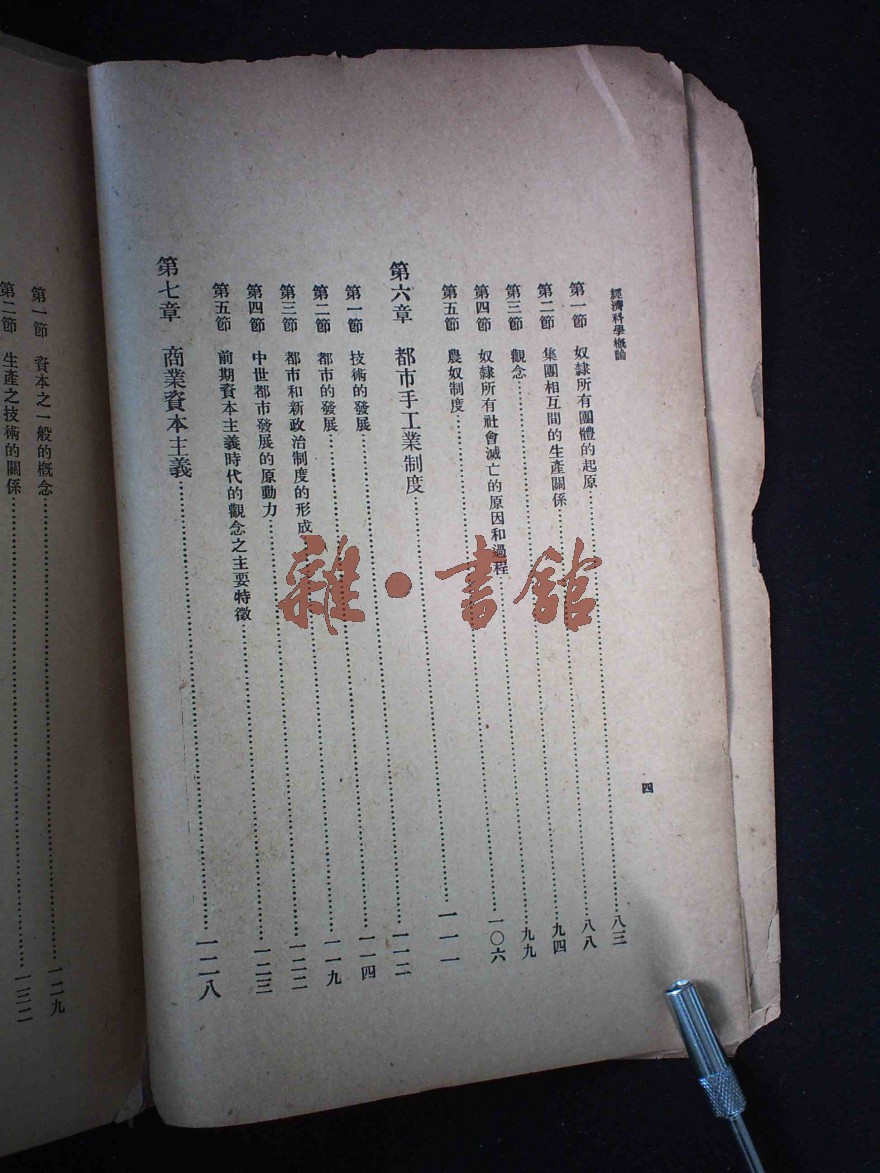 經濟科學概論
四
第一節 奴隸所有團體的起原……八三
第二節 集團相互間的生產關係……八八
第三節 觀念……九四
第四節 奴隸所有社會滅亡的原因和過程……九九
第五節 農奴制度……一〇六
第六章 都市手工業制度……一一一
第一節 技術的發展……一一二
第二節 都市的發展……一一四
第三節 都市和新政治制度的形成……一一九
第四節 中世都市發展的原動力……一二二
第五節 前期資本主義時代的觀念之主要特徵……一二三
第七章 商業資本主義……一二八
第一節 資本之一般的概念……一二九
第二節 生產之技術的關係……一三二
雜·書館